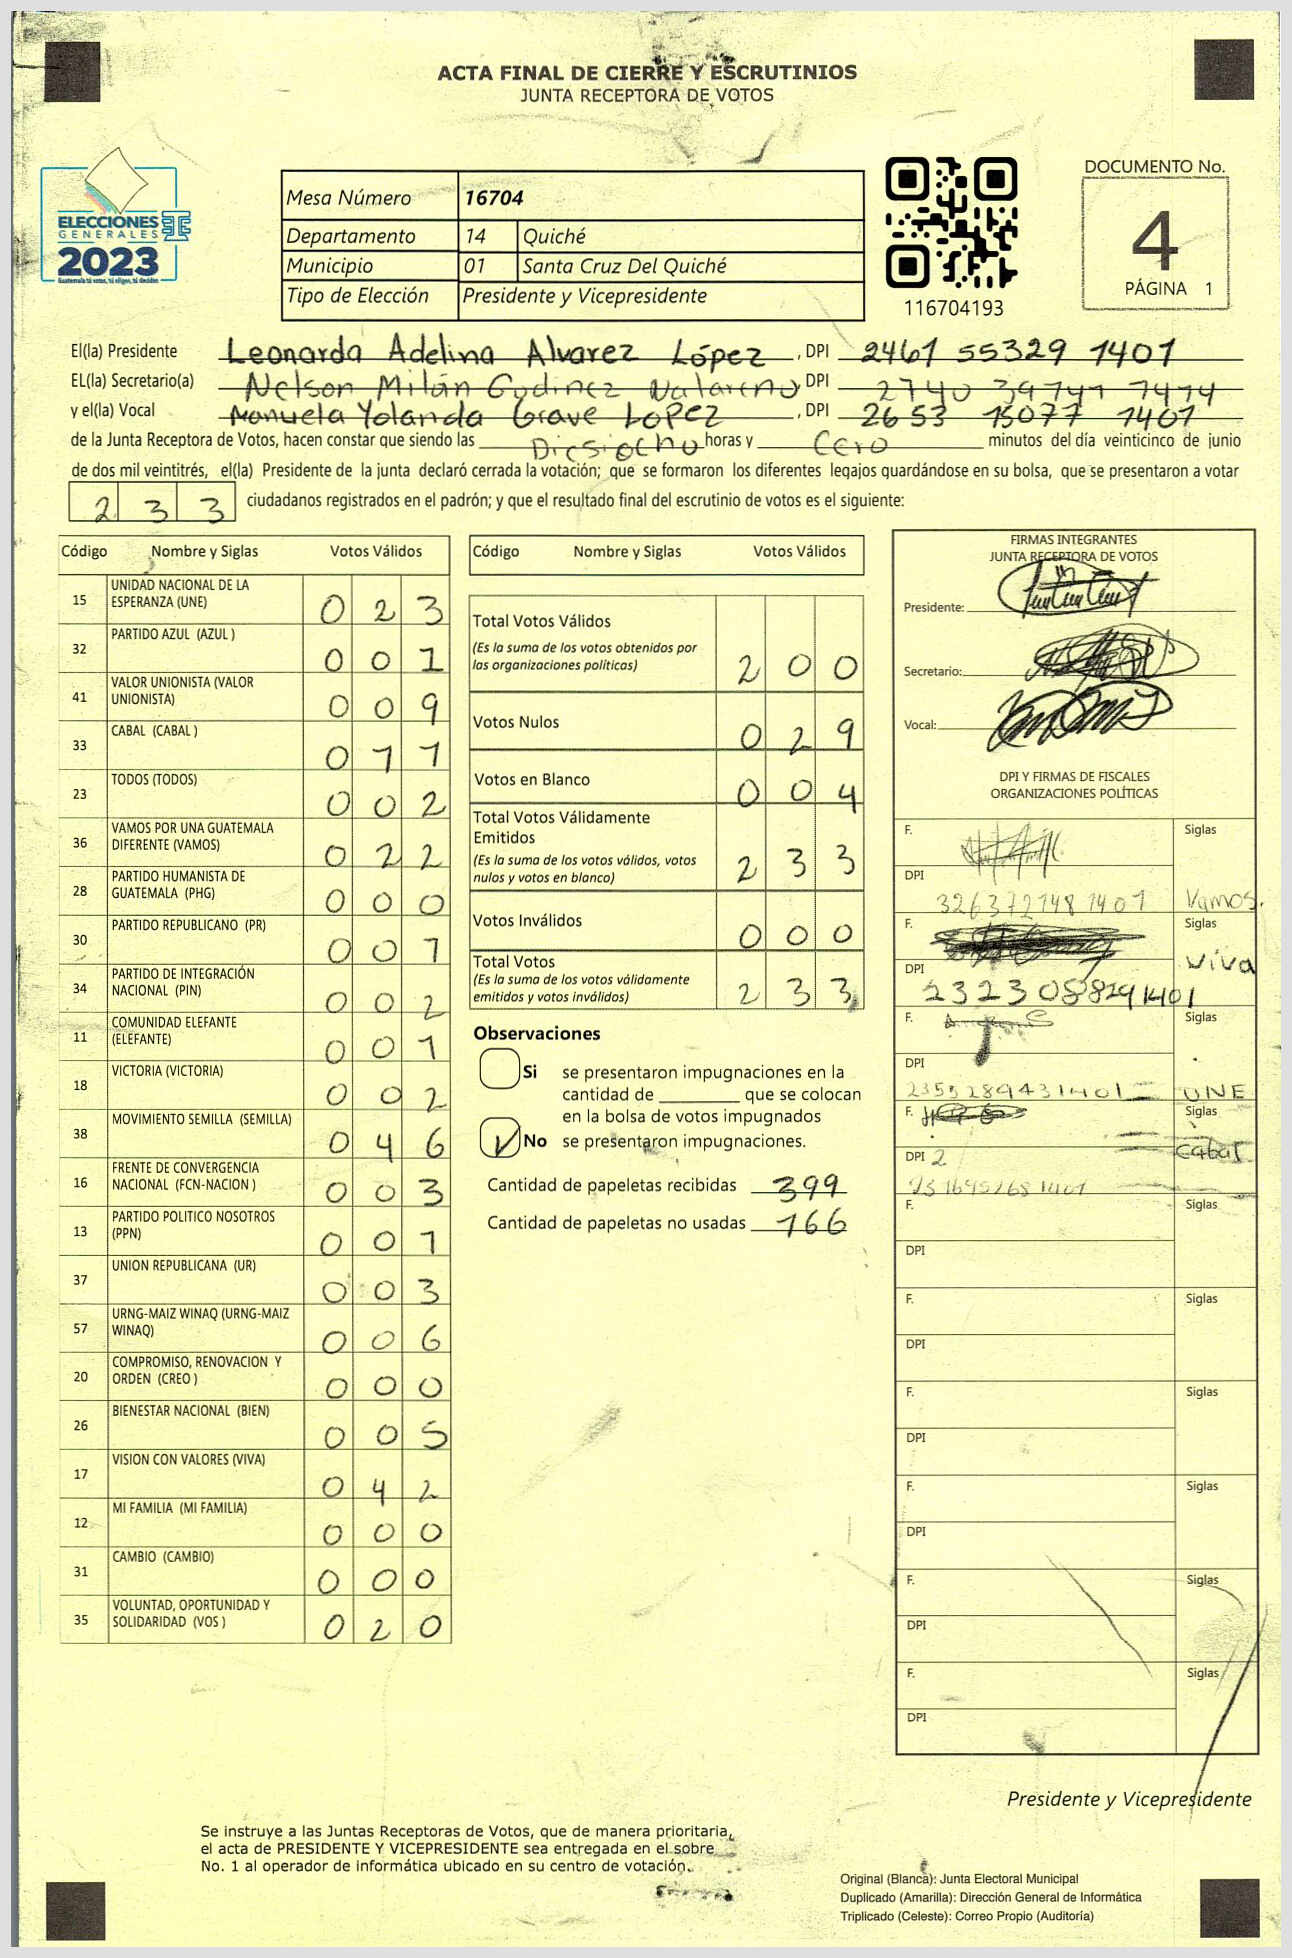 ACTA FINAL DE CIERRE Y ESCRUTINIOS
JUNTA RECEPTORA DE VOTOS
ELECCIONES
GENERALES
2023
Guatemala tú votas, tú eliges, tú decides
Mesa Número 16704
Departamento 14 Quiché
Municipio 01 Santa Cruz Del Quiché
Tipo de Elección Presidente y Vicepresidente
116704193
DOCUMENTO No.
4
PÁGINA 1
El(la) Presidente Leonarda Adelina Alvarez López, DPI 2461 55329 1401
EL(la) Secretario(a) Nelson Milán Godinez DPI 2740
y el(la) Vocal Manuela Yolanda Grave LoPez, DPI 2653 15077 1401
de la Junta Receptora de Votos, hacen constar que siendo las Diesiocho horas y Cero minutos del día veinticinco de junio
de dos mil veintitrés, el(la) Presidente de la junta declaró cerrada la votación; que se formaron los diferentes legajos guardándose en su bolsa, que se presentaron a votar
233 ciudadanos registrados en el padrón; y que el resultado final del escrutinio de votos es el siguiente:
Código Nombre y Siglas Votos Válidos
15 UNIDAD NACIONAL DE LA ESPERANZA (UNE) 023
32 PARTIDO AZUL (AZUL ) 001
41 VALOR UNIONISTA (VALOR UNIONISTA) 009
33 CABAL (CABAL ) 011
23 TODOS (TODOS) 002
36 VAMOS POR UNA GUATEMALA DIFERENTE (VAMOS) 022
28 PARTIDO HUMANISTA DE GUATEMALA (PHG) 000
30 PARTIDO REPUBLICANO (PR) 001
34 PARTIDO DE INTEGRACIÓN NACIONAL (PIN) 002
11 COMUNIDAD ELEFANTE (ELEFANTE) 001
18 VICTORIA (VICTORIA) 002
38 MOVIMIENTO SEMILLA (SEMILLA) 046
16 FRENTE DE CONVERGENCIA NACIONAL (FCN-NACION ) 003
13 PARTIDO POLITICO NOSOTROS (PPN) 001
37 UNION REPUBLICANA (UR) 003
57 URNG-MAIZ WINAQ (URNG-MAIZ WINAQ) 006
20 COMPROMISO, RENOVACION Y ORDEN (CREO ) 000
26 BIENESTAR NACIONAL (BIEN) 005
17 VISION CON VALORES (VIVA) 042
12 MI FAMILIA (MI FAMILIA) 000
31 CAMBIO (CAMBIO) 000
35 VOLUNTAD, OPORTUNIDAD Y SOLIDARIDAD (VOS ) 020
Código Nombre y Siglas Votos Válidos
Total Votos Válidos
(Es la suma de los votos obtenidos por
las organizaciones políticas) 200
Votos Nulos 029
Votos en Blanco 004
Total Votos Válidamente
Emitidos
(Es la suma de los votos válidos, votos
nulos y votos en blanco) 233
Votos Inválidos 000
Total Votos
(Es la suma de los votos válidamente
emitidos y votos inválidos) 233
Observaciones
Si se presentaron impugnaciones en la
cantidad de ________ que se colocan
en la bolsa de votos impugnados
No se presentaron impugnaciones.
Cantidad de papeletas recibidas 399
Cantidad de papeletas no usadas 166
FIRMAS INTEGRANTES
JUNTA RECEPTORA DE VOTOS
Presidente:
Secretario:
Vocal:
DPI Y FIRMAS DE FISCALES
ORGANIZACIONES POLÍTICAS
F. Siglas
DPI
3263721481401 Vamos.
F. Siglas
DPI viva
2323088291401
F. Siglas
DPI
2353289431401 UNE
F. Siglas
DPI 2 Cabal
F. Siglas
DPI
F. Siglas
DPI
F. Siglas
DPI
F. Siglas
DPI
F. Siglas
DPI
F. Siglas
DPI
Presidente y Vicepresidente
Se instruye a las Juntas Receptoras de Votos, que de manera prioritaria,
el acta de PRESIDENTE Y VICEPRESIDENTE sea entregada en el sobre
No. 1 al operador de informática ubicado en su centro de votación.
Original (Blanca): Junta Electoral Municipal
Duplicado (Amarilla): Dirección General de Informática
Triplicado (Celeste): Correo Propio (Auditoría)